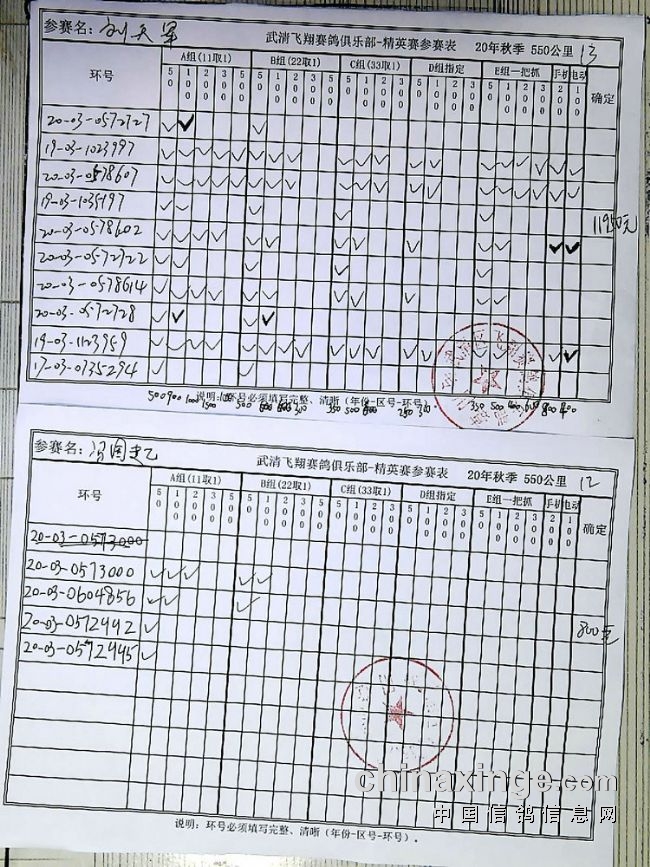 参赛名：刘天军
武清飞翔赛鸽俱乐部-精英赛参赛表 20年秋季 550公里 13
环号 A组(11取1) B组(22取1) C组(33取1) D组指定 E组一把抓 手机 电动 确定
50 100 200 300 500 50 100 200 300 500 50 100 200 300 500 50 100 200 300 50 100 200 300 500 200 100
20-03-0572727 ✓ ✓ ✓
19-03-1023997
20-03-0578607
19-03-1035197
11950元
20-03-0578602
20-03-0572722
20-03-0578614
20-03-0572728
19-03-1123959
17-03-0735294
说明：环号必须填写完整、清晰（年份-区号-环号）
参赛名：
武清飞翔赛鸽俱乐部-精英赛参赛表 20年秋季 550公里 12
环号 A组(11取1) B组(22取1) C组(33取1) D组指定 E组一把抓 手机 电动 确定
20-03-0573000
20-03-0573000
20-03-0604856
20-03-0572442
800元
20-03-0572445
chinaxinge.com
中国信鸽信息网
说明：环号必须填写完整、清晰（年份-区号-环号）.